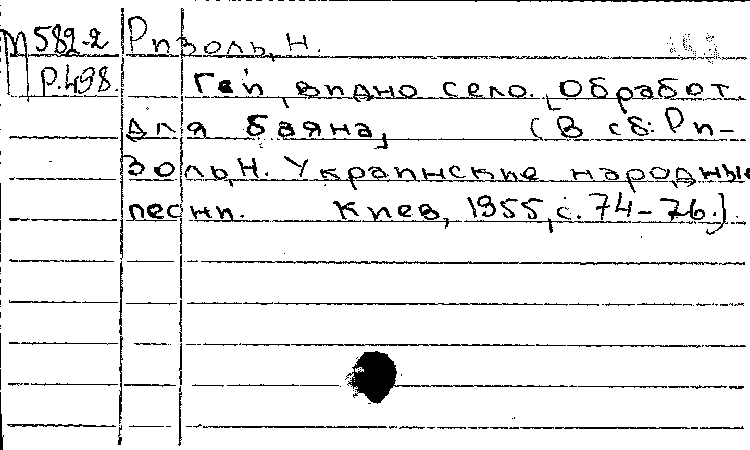 М582-2 Ризоль, Н.
Р.498. Гей, видно село. [Обработ.
для баяна] (В сб: Ри-
золь, Н. Украинские народные
песни. Киев, 1955, с. 74-76.)